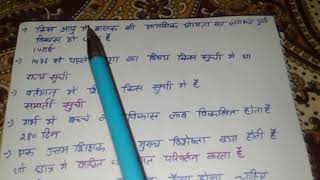 किस आयु में बालक की मानसिक योग्यता का लगभग पूर्ण
विकास हो जाता है
14 वर्ष
1976 से पहले शिक्षा का विषय किस सूची में था
राज्य सूची
वर्तमान में किस सूची में है
समवर्ती सूची
गर्भ में बच्चे का विकास कब विकसित होता है
280 दिन
एक उत्तम शिक्षक की मुख्य विशेषता क्या होती है
जो छात्र में वांछित परिवर्तन करता है
कैसा होना चाहिए